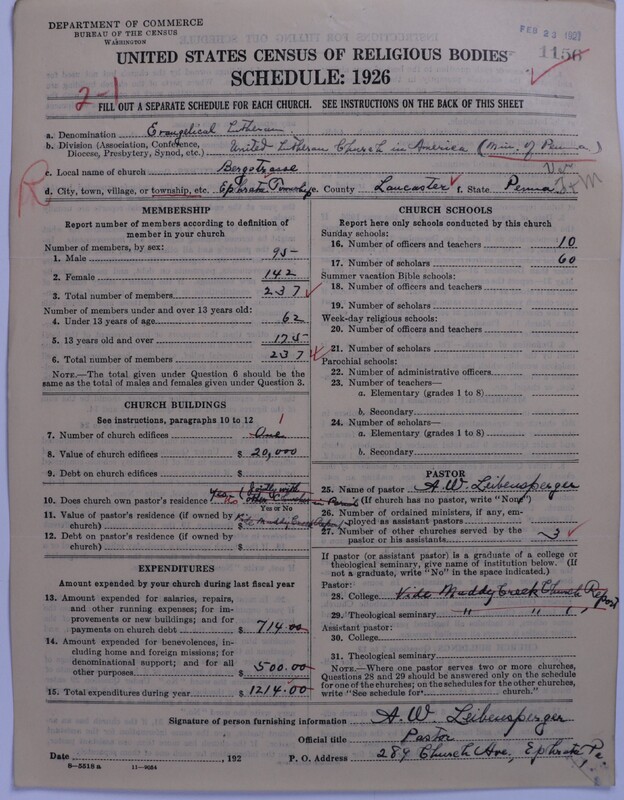 DEPARTMENT OF COMMERCE
BUREAU OF THE CENSUS
WASHINGTON
FEB 23 192
1156
UNITED STATES CENSUS OF RELIGIOUS BODIES
SCHEDULE: 1926
2-1
FILL OUT A SEPARATE SCHEDULE FOR EACH CHURCH. SEE INSTRUCTIONS ON THE BACK OF THIS SHEET
a. Denomination Evangelical Lutheran
b. Division (Association, Conference, Diocese, Presbytery, Synod, etc.) United Lutheran Church in America (Min. of Penna)
c. Local name of church Bergstrasse
d. City, town, village, or township, etc. Ephrata Township e. County Lancaster f. State Penna.
MEMBERSHIP
Report number of members according to definition of member in your church
Number of members, by sex:
1. Male 95
2. Female 142
3. Total number of members 237
Number of members under and over 13 years old:
4. Under 13 years of age 62
5. 13 years old and over 175
6. Total number of members 237
NOTE.—The total given under Question 6 should be the same as the total of males and females given under Question 3.
CHURCH BUILDINGS
See instructions, paragraphs 10 to 12
7. Number of church edifices One 1
8. Value of church edifices $ 20,000
9. Debt on church edifices $
10. Does church own pastor's residence Yes Jointly with other Churches in
Yes or No
11. Value of pastor's residence (if owned by church) $ Vide Muddy Creek Report
12. Debt on pastor's residence (if owned by church) $
EXPENDITURES
Amount expended by your church during last fiscal year
13. Amount expended for salaries, repairs, and other running expenses; for improvements or new buildings; and for payments on church debt $ 714.00
14. Amount expended for benevolences, including home and foreign missions; for denominational support; and for all other purposes $ 500.00
15. Total expenditures during year $ 1214.00
CHURCH SCHOOLS
Report here only schools conducted by this church
Sunday schools:
16. Number of officers and teachers 10
17. Number of scholars 60
Summer vacation Bible schools:
18. Number of officers and teachers
19. Number of scholars
Week-day religious schools:
20. Number of officers and teachers
21. Number of scholars
Parochial schools:
22. Number of administrative officers
23. Number of teachers—
a. Elementary (grades 1 to 8)
b. Secondary
24. Number of scholars—
a. Elementary (grades 1 to 8)
b. Secondary
PASTOR
25. Name of pastor A. W. Leibensperger
(If church has no pastor, write "None")
26. Number of ordained ministers, if any, employed as assistant pastors
27. Number of other churches served by the pastor or his assistants 3
If pastor (or assistant pastor) is a graduate of a college or theological seminary, give name of institution below. (If not a graduate, write "No" in the space indicated.)
Pastor:
28. College Vide Muddy Creek Church Report
29. Theological seminary " " "
Assistant pastor:
30. College
31. Theological seminary
NOTE.—Where one pastor serves two or more churches, Questions 28 and 29 should be answered only on the schedule for one of the churches; on the schedules for the other churches, write "See schedule for church."
Signature of person furnishing information A. W. Leibensperger
Official title Pastor
Date , 192 P. O. Address 289 Church Ave., Ephrata Pa.
8—5518 a 11—9054